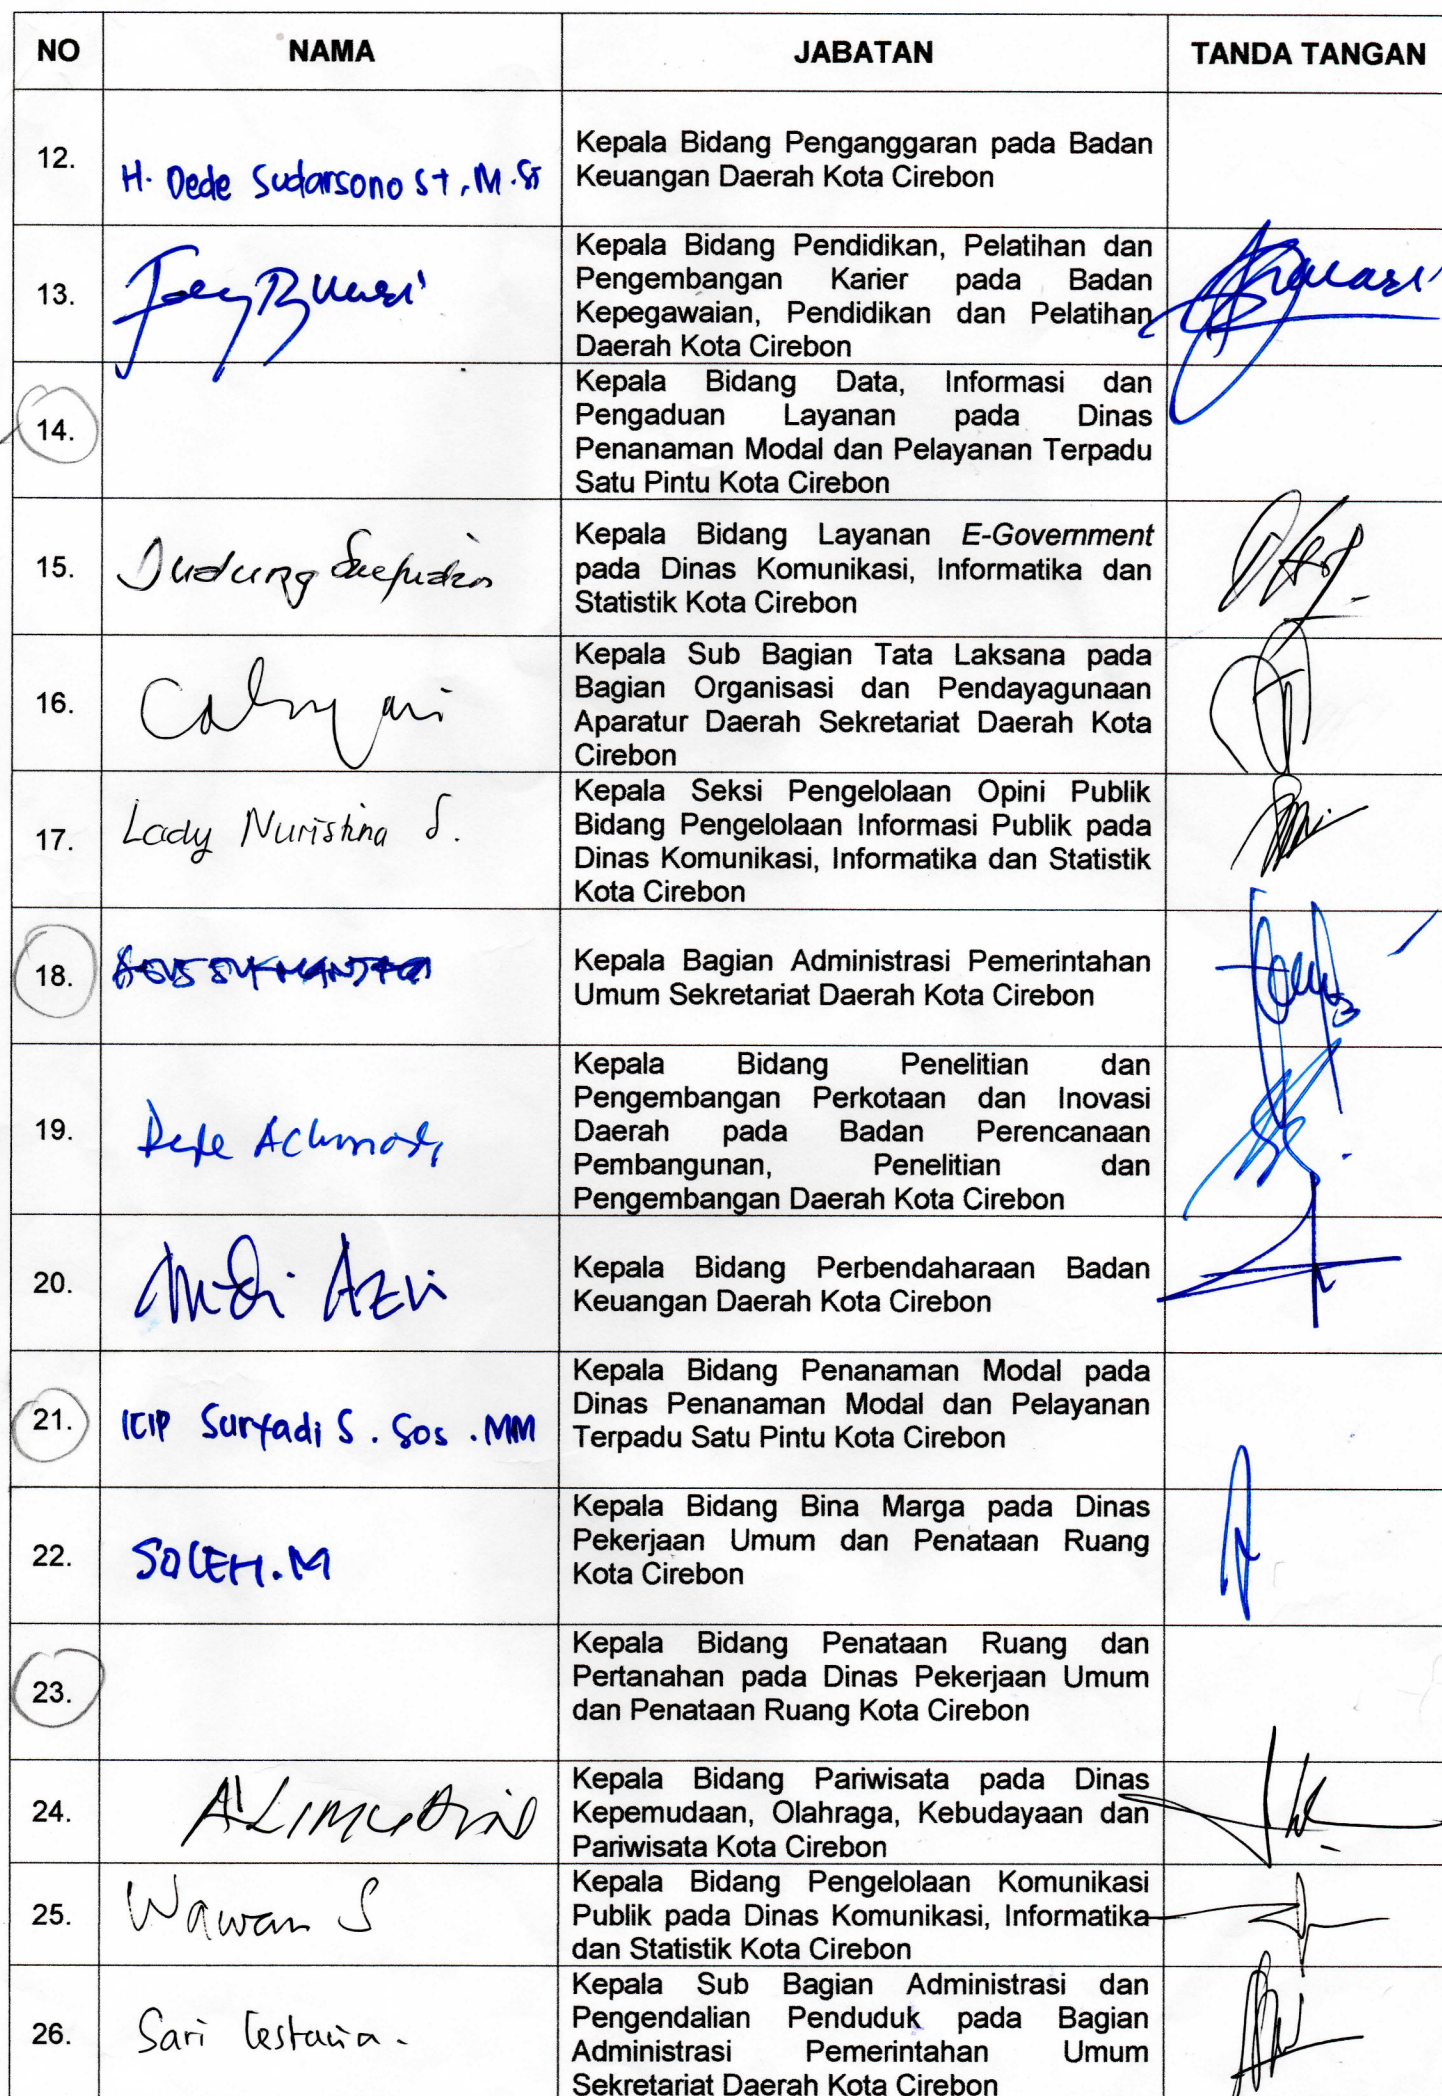 NO NAMA JABATAN TANDA TANGAN
12. H. Dede Sudarsono ST, M.Si Kepala Bidang Penganggaran pada Badan
Keuangan Daerah Kota Cirebon
13. Kepala Bidang Pendidikan, Pelatihan dan
Pengembangan Karier pada Badan
Kepegawaian, Pendidikan dan Pelatihan
Daerah Kota Cirebon
14. Kepala Bidang Data, Informasi dan
Pengaduan Layanan pada Dinas
Penanaman Modal dan Pelayanan Terpadu
Satu Pintu Kota Cirebon
15. Dudung Saefudin Kepala Bidang Layanan E-Government
pada Dinas Komunikasi, Informatika dan
Statistik Kota Cirebon
16. Kepala Sub Bagian Tata Laksana pada
Bagian Organisasi dan Pendayagunaan
Aparatur Daerah Sekretariat Daerah Kota
Cirebon
17. Lady Nuristina S. Kepala Seksi Pengelolaan Opini Publik
Bidang Pengelolaan Informasi Publik pada
Dinas Komunikasi, Informatika dan Statistik
Kota Cirebon
18. Kepala Bagian Administrasi Pemerintahan
Umum Sekretariat Daerah Kota Cirebon
19. Kepala Bidang Penelitian dan
Pengembangan Perkotaan dan Inovasi
Daerah pada Badan Perencanaan
Pembangunan, Penelitian dan
Pengembangan Daerah Kota Cirebon
20. Kepala Bidang Perbendaharaan Badan
Keuangan Daerah Kota Cirebon
21. ICIP Suryadi S. Sos. MM Kepala Bidang Penanaman Modal pada
Dinas Penanaman Modal dan Pelayanan
Terpadu Satu Pintu Kota Cirebon
22. SOLEH.M Kepala Bidang Bina Marga pada Dinas
Pekerjaan Umum dan Penataan Ruang
Kota Cirebon
23. Kepala Bidang Penataan Ruang dan
Pertanahan pada Dinas Pekerjaan Umum
dan Penataan Ruang Kota Cirebon
24. ALIMUDIN Kepala Bidang Pariwisata pada Dinas
Kepemudaan, Olahraga, Kebudayaan dan
Pariwisata Kota Cirebon
25. Wawan S Kepala Bidang Pengelolaan Komunikasi
Publik pada Dinas Komunikasi, Informatika
dan Statistik Kota Cirebon
26. Sari Kepala Sub Bagian Administrasi dan
Pengendalian Penduduk pada Bagian
Administrasi Pemerintahan Umum
Sekretariat Daerah Kota Cirebon